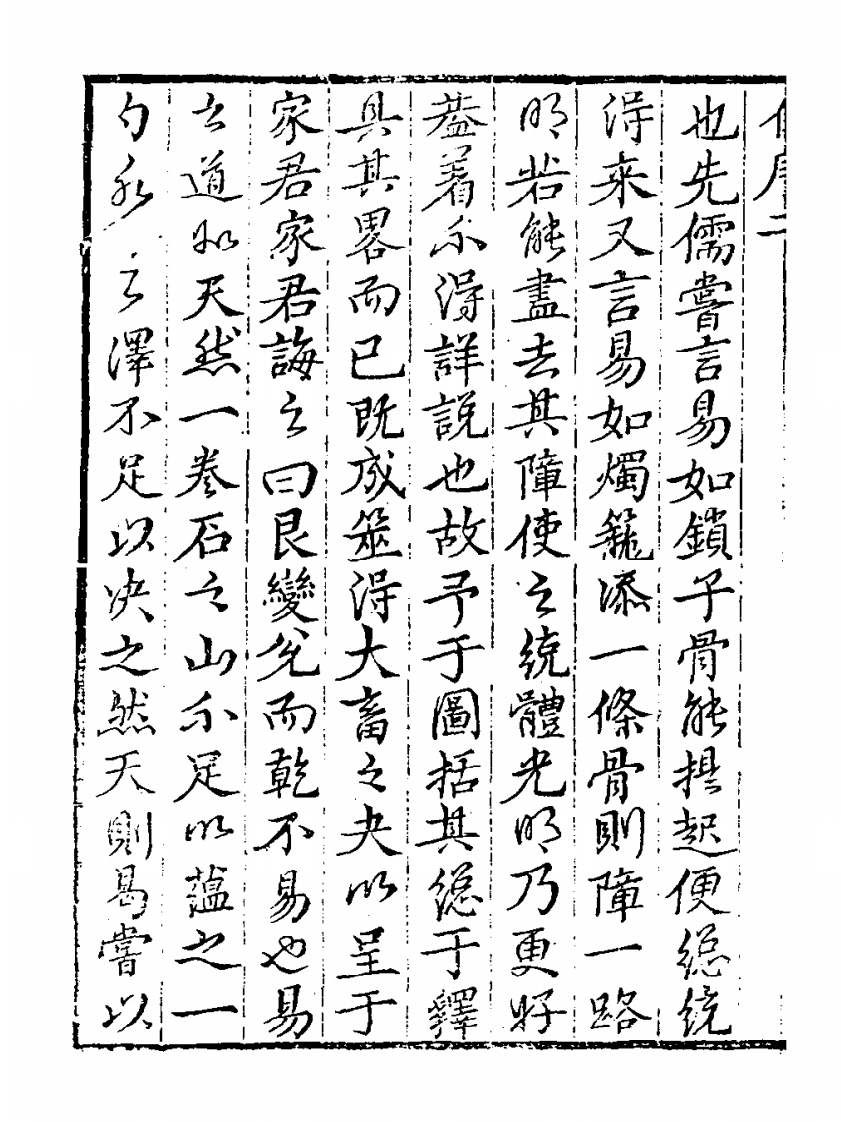 序二
也先儒嘗言易如鎖子骨能提起便總統
得来又言易如燭籠添一條骨則障一路
明若能盡去其障使之統體光明乃更好
葢著不得詳說也故予于圖括其總于釋
具其畧而已既成筮得大畜之夬以呈于
家君家君誨之曰艮變兊而乾不易也易
之道如天然一卷石之山不足以蘊之一
勺水之澤不足以决之然天則曷嘗以